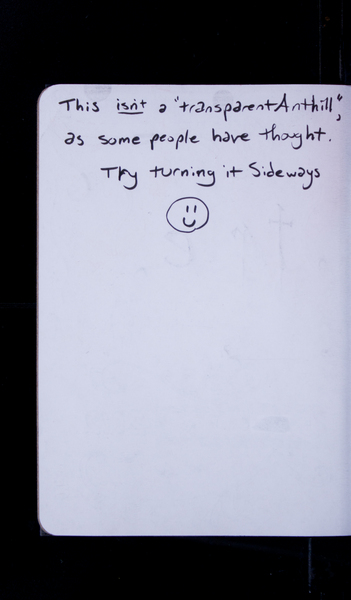 This isn't a "transparent Anthill",
as some people have thought.
Try turning it Sideways